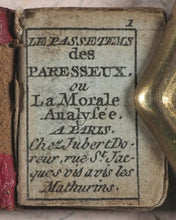 1
LE PASSETEMS
des
PARESSEUX.
ou
La Morale
Analysée.
A PARIS.
Chez Jubert Do-
reur, rue St. Jac-
ques vis avis les
Mathurins.